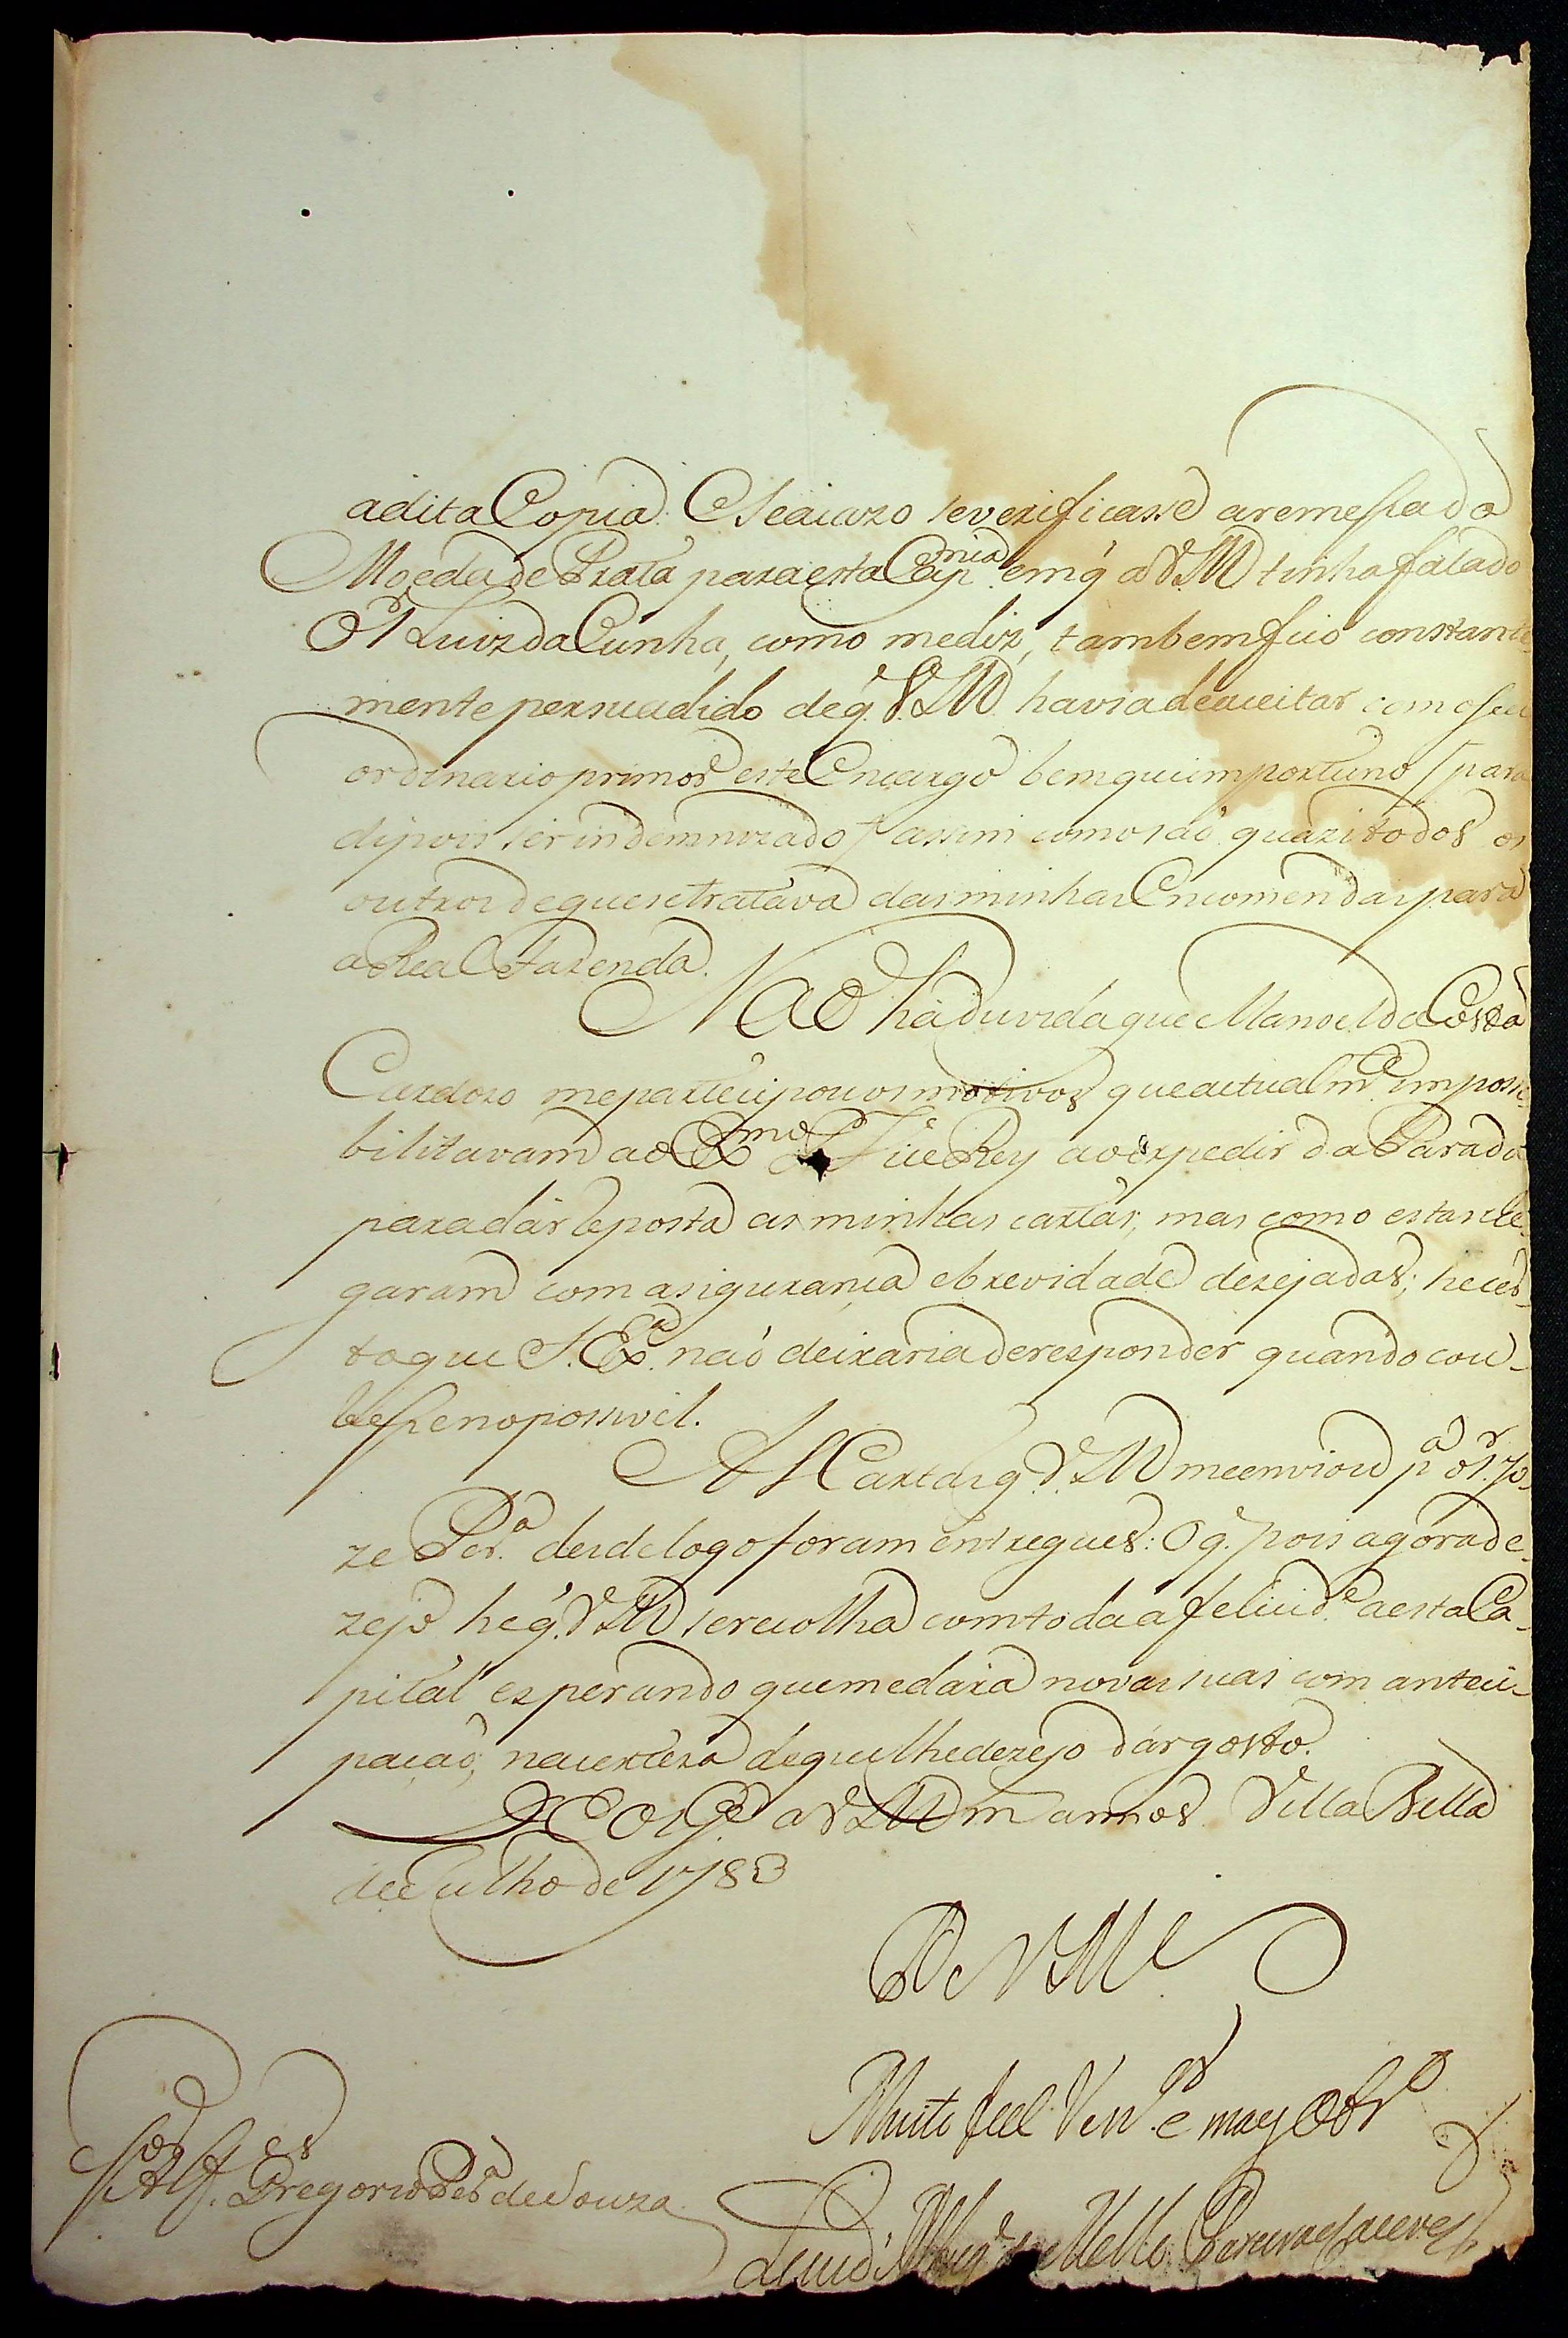 adita Copia. E se aiazo se verificasse a remessa da
Moeda de Prata para esta Cap.nia em q̃ a V.M. tinha falado
O S.r Luiz da Cunha, como me diz, tambem fico constante-
mente persuadido de q̃. V.M. havia de aceitar com o seu
ordinario primor este Encargo bem que importuno / para
dipois ser indemnizado / assim como são quazi todos os
outros de que se tratava das minhas Encomendas para
a Real Fazenda.
Naõ há duvida que Manoel da Costa
Cardozo me participou os motivos que actualm.e impossi-
bilitavam ao Ex.mo S.r Vice Rey ao expedir da Parada
para dar reposta as minhas cartas; mas como estas che-
garam com a sigurança e brevidade dezejadas; he cer-
to que S. Ex.a naõ deixaria de responder quando cou-
besse no possivel.
As Cartas q̃. V.M. me enviou p.a o S.r Jo-
ze Per.a desde logo foram entregues: O q̃. pois agora de-
zejo he q̃. V.M. se recolha com toda a felicid.e a esta Ca-
pital esperando que me dará novas suas com antici-
paçaõ, na certeza de que lhe dezejo dár gosto.
D.s g.e a V.M. m annos. Villa Bella
de Julho de 1783
De V.M.ce
Muito fiel Ven.or e mayor Obr.o
S.or Alf.es Gregorio Per.a de Souza
Luis de Albuq.e de Mello Pereira e Caceres